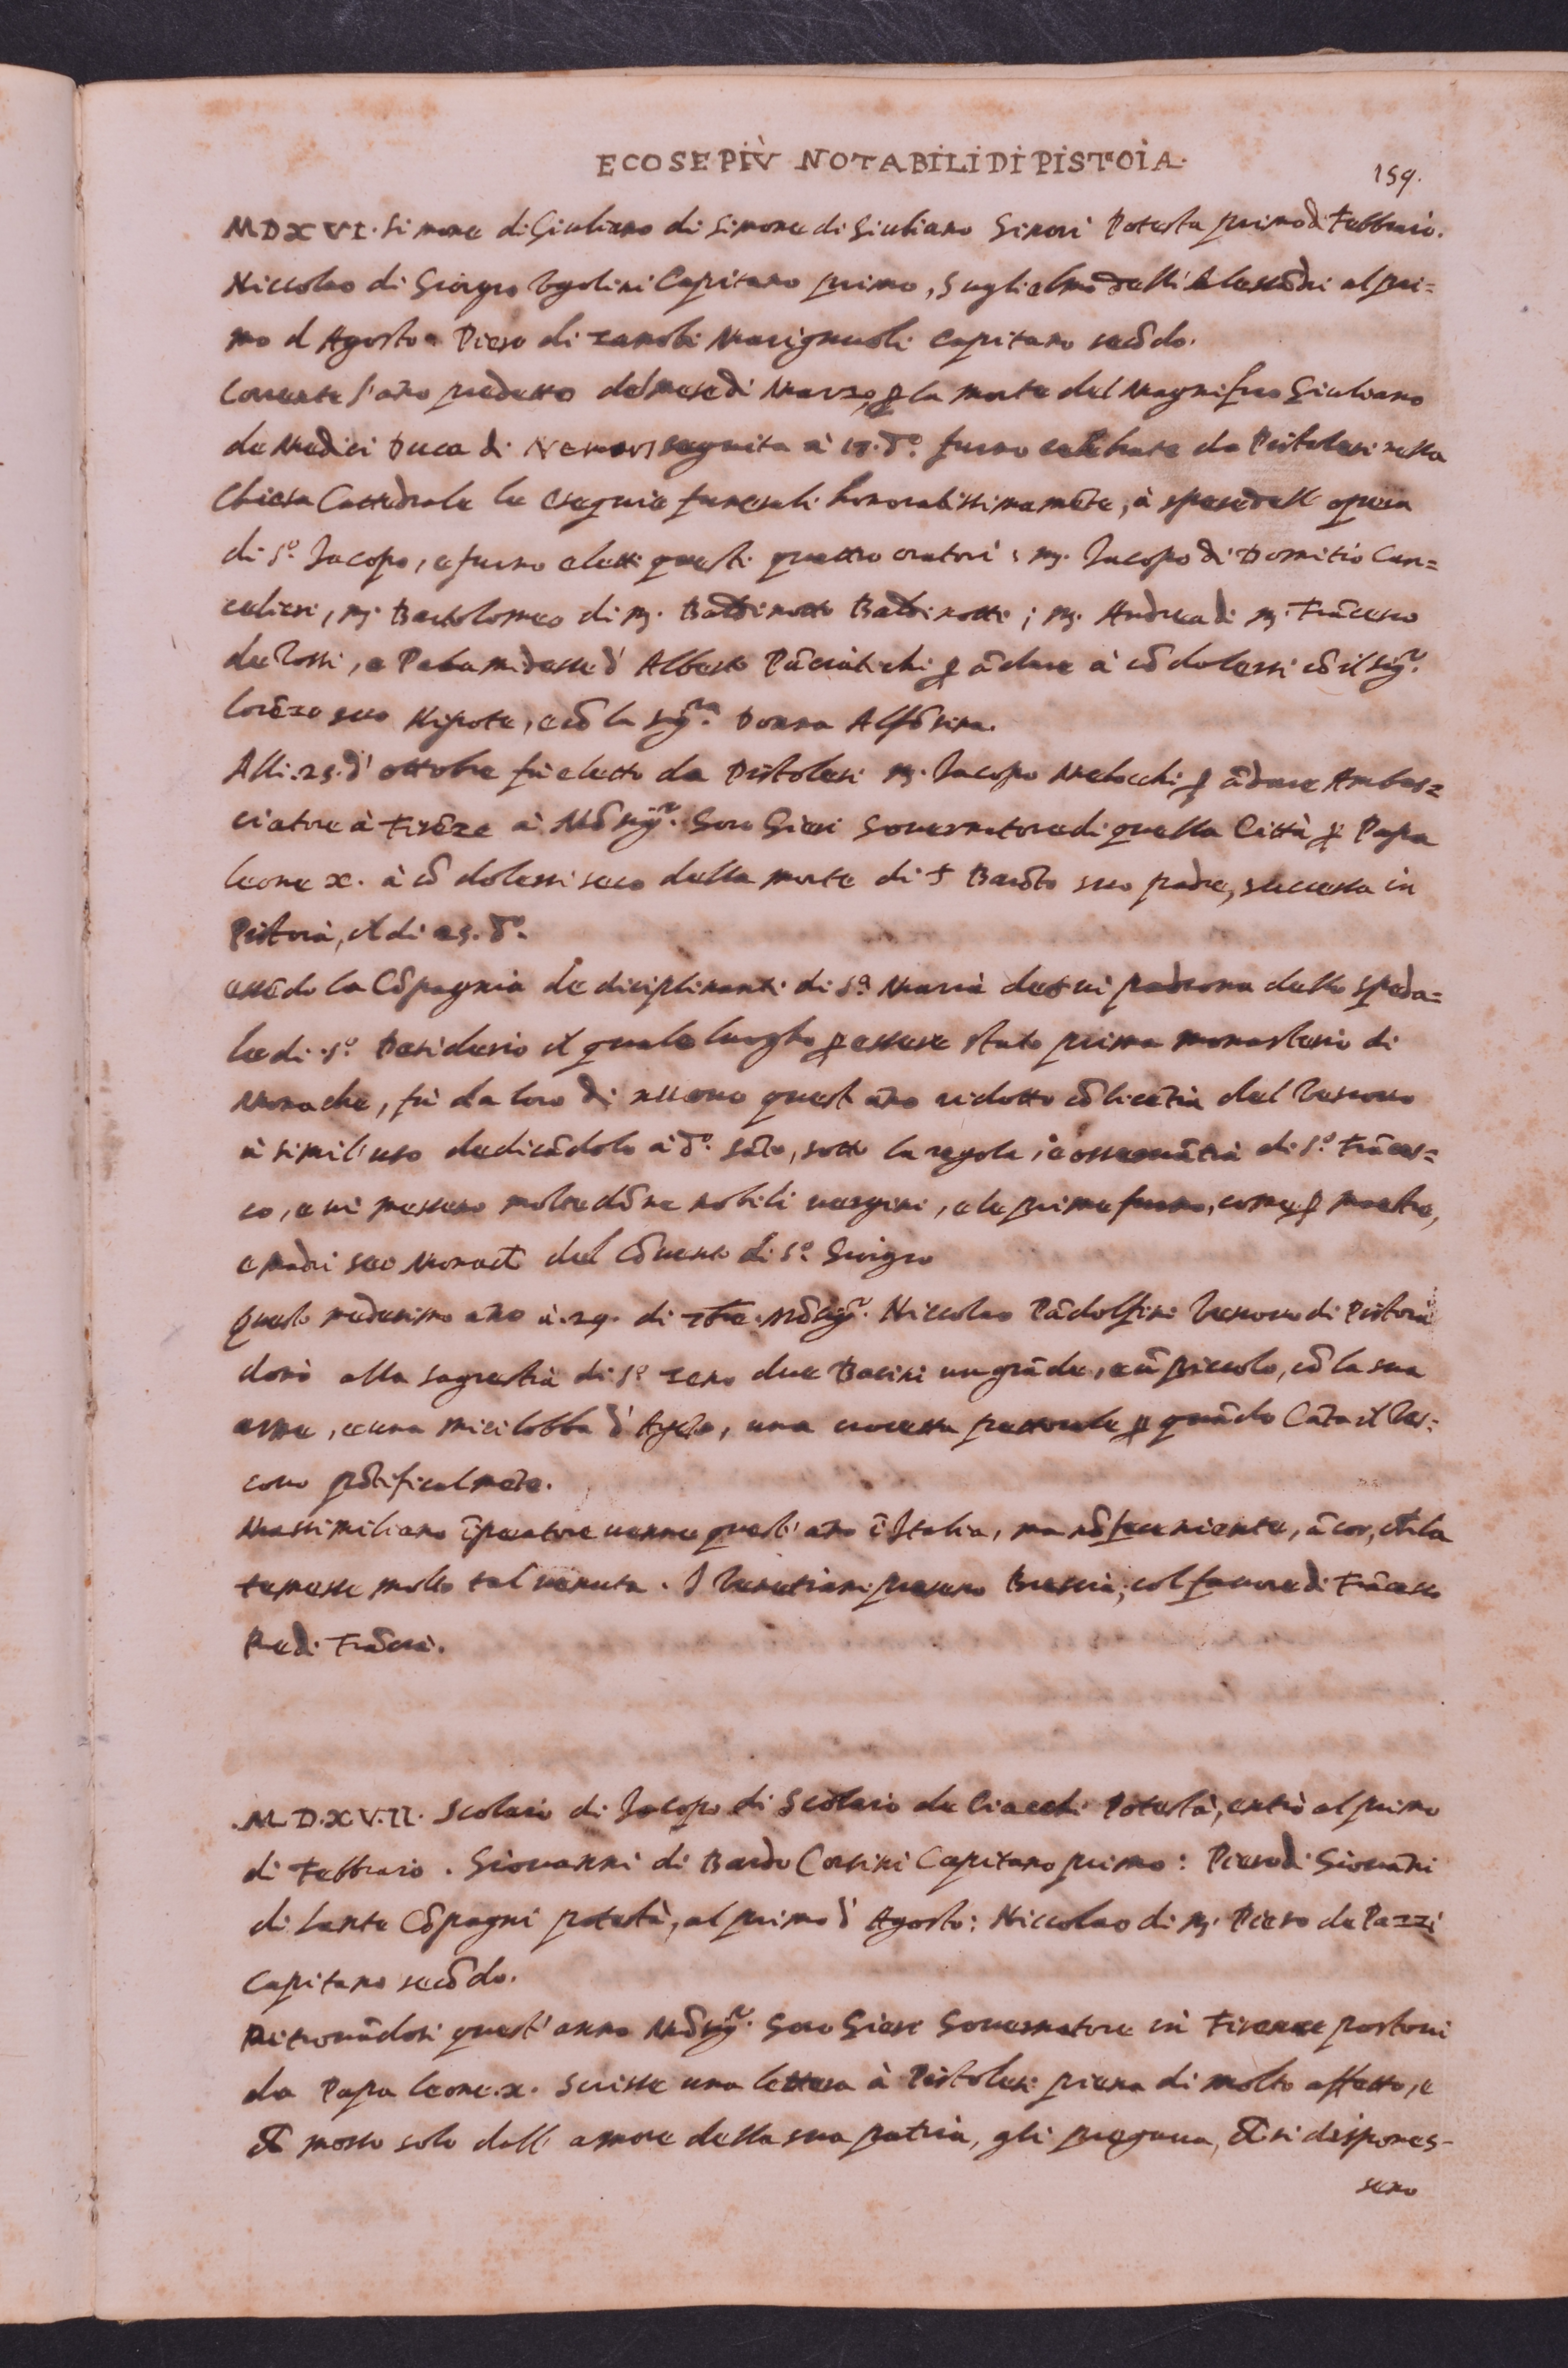 E COSE PIÙ NOTABILI DI PISTOIA.
159.
MDXVI. Simone di Giuliano di Simone di Giuliano Ginori Potesta primo di Febbraio.
Niccolao di Giorgio Ugolini Capitano primo, Guglielmo delli Alessãdri al pri=
mo d Agosto. Piero di Zanobi Marignuoli Capitano secõdo.
Corrente l'ãno predetto del mese di Marzo, ꝑ la morte del Magnifico Giuliano
de Medici Duca di Nemors seguita à dº. furno celebrate da Pistolesi nella
Chiesa Cattedrale le esequie funerali honorabilissimamẽte, à spese dell opera
di Sº. Jacopo, e furno eletti questi quattro oratori: mſ. Jacopo di Domitio Can=
cellieri, mſ. Bartolomeo di mſ. Baldinotto Baldinotti; mſ. Andrea di mſ. Frãcesco
de Rossi, e Palamidesse d' Alberto Pãciatichi ꝑ ãdare à cõdolersi cõ il sigʳ.
Lorẽzo suo Nipote, e cõ la sigʳᵃ. Donna Alfõsina.
Alli .25. d' ottobre fù eletto da Pistolesi mſ. Jacopo Melocchi ꝑ ãdare Ambas=
ciatore à Firẽze à Mõsigʳ. Goro Gieri Governatore di quella Città ꝑ Papa
Leone X. à cõdolersi seco della morte di Barõto suo padre, successa in
Pistoia, il di 25. dº.
essẽdo la Cõpagnia de disciplinanti di Sª. Maria de padrona dello speda=
le di Sº. Desiderio il quale luogho ꝑ essere stato prima monasterio di
Monache, fù da loro di nuovo quest ãno ridotto cõ licẽtia del Vescovo
à simil' uso dedicãdolo à dº. sãto, sotto la regola, e osservãtia di Sº. Frãces=
co, e vi messero molte dõne nobili vergini, e le prime furno, come ꝑ maestre,
e madri sei Monache del Cõvento di Sº. Giorgio
Questo medesimo ãno à .29. di Mõsigʳ. Niccolao Pãdolfini Vescovo di Pistoia
donò alla sagrestia di Sº Zeno due Bacini un grãde, e ũ piccolo, cõ la sua
arme, e una micilobba d' Argẽto, una crocetta pettorale ꝑ quãdo Cãta il Ves=
covo põtificalmẽte.
Massimiliano ĩperatore venne quest' ãno ĩ Italia, ma nõ fece niente, ãcor, che la
temesse molto tal venuta. I Venetiani presero Brescia, col favore di Frãcesco
Re di Frãcia.
.M.D.XV.II. Scolaio di Jacopo di Scolaio de Ciacchi Potestà, entrò al primo
di Febbraio. Giovanni di Bardo Corsini Capitano primo: Piero di Giovãni
di Lante Cõpagni potestà, al primo d' Agosto: Niccolao di mſ. Piero de Pazzi
Capitano secõdo.
Ritrovãdosi quest' anno Mõsigʳ. Goro Gieri Governatore in Firenze postovi
da Papa Leone.X. scrisse una lettera à Pistolesi piena di molto affetto, e
che mosso solo dall' amore della sua patria, gli pregava, che si dispones-
sero